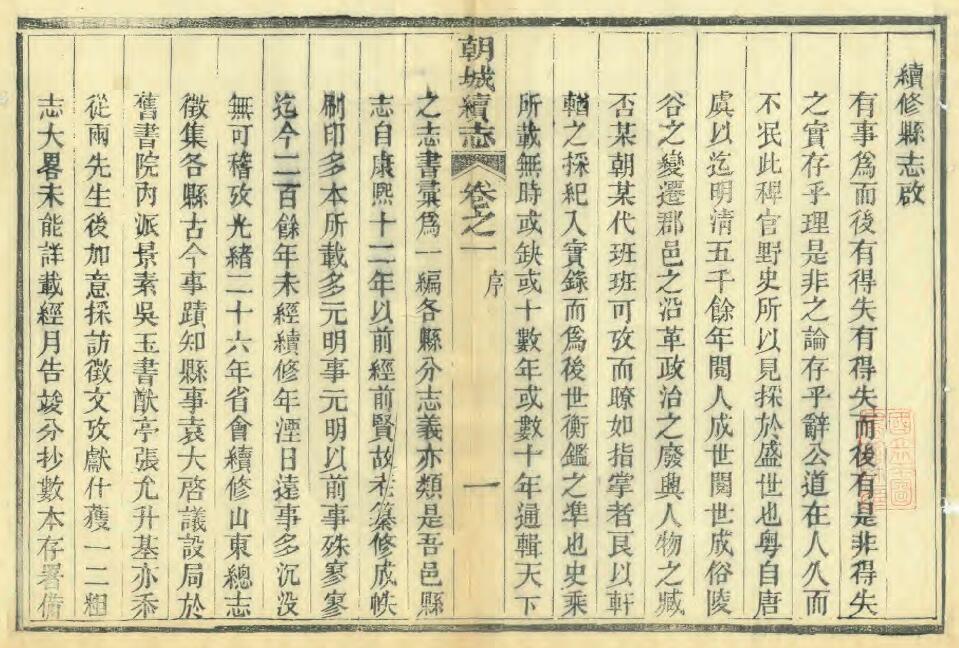 續修縣志啟
有事爲而後有得失有得失而後有是非得失
之實存乎理是非之論存乎辭公道在人久而
不泯此稗官野史所以見採於盛世也粤自唐
虞以迄明清五千餘年閱人成世閱世成俗陵
谷之變遷郡邑之沿革政治之廢興人物之臧
否某朝某代班班可攷而瞭如指掌者良以軒
輶之採紀入實錄而爲後世衡鑑之凖也史乘
所載無時或缺或十數年或數十年通輯天下
朝城續志 卷之一 序 一
之志書彙爲一編各縣分志義亦類是吾邑縣
志自康熙十二年以前經前賢故老纂修成帙
刷印多本所載多元明事元明以前事殊寥寥
迄今二百餘年未經續修年湮日遠事多沉没
無可稽攷光緒二十六年省會續修山東總志
徵集各縣古今事蹟知縣事袁大啓議設局於
舊書院內派景素吳玉書猷亭張允升基亦忝
從兩先生後加意採訪徵文攷獻什獲一二粗
志大畧未能詳載經月告竣分抄數本存署備